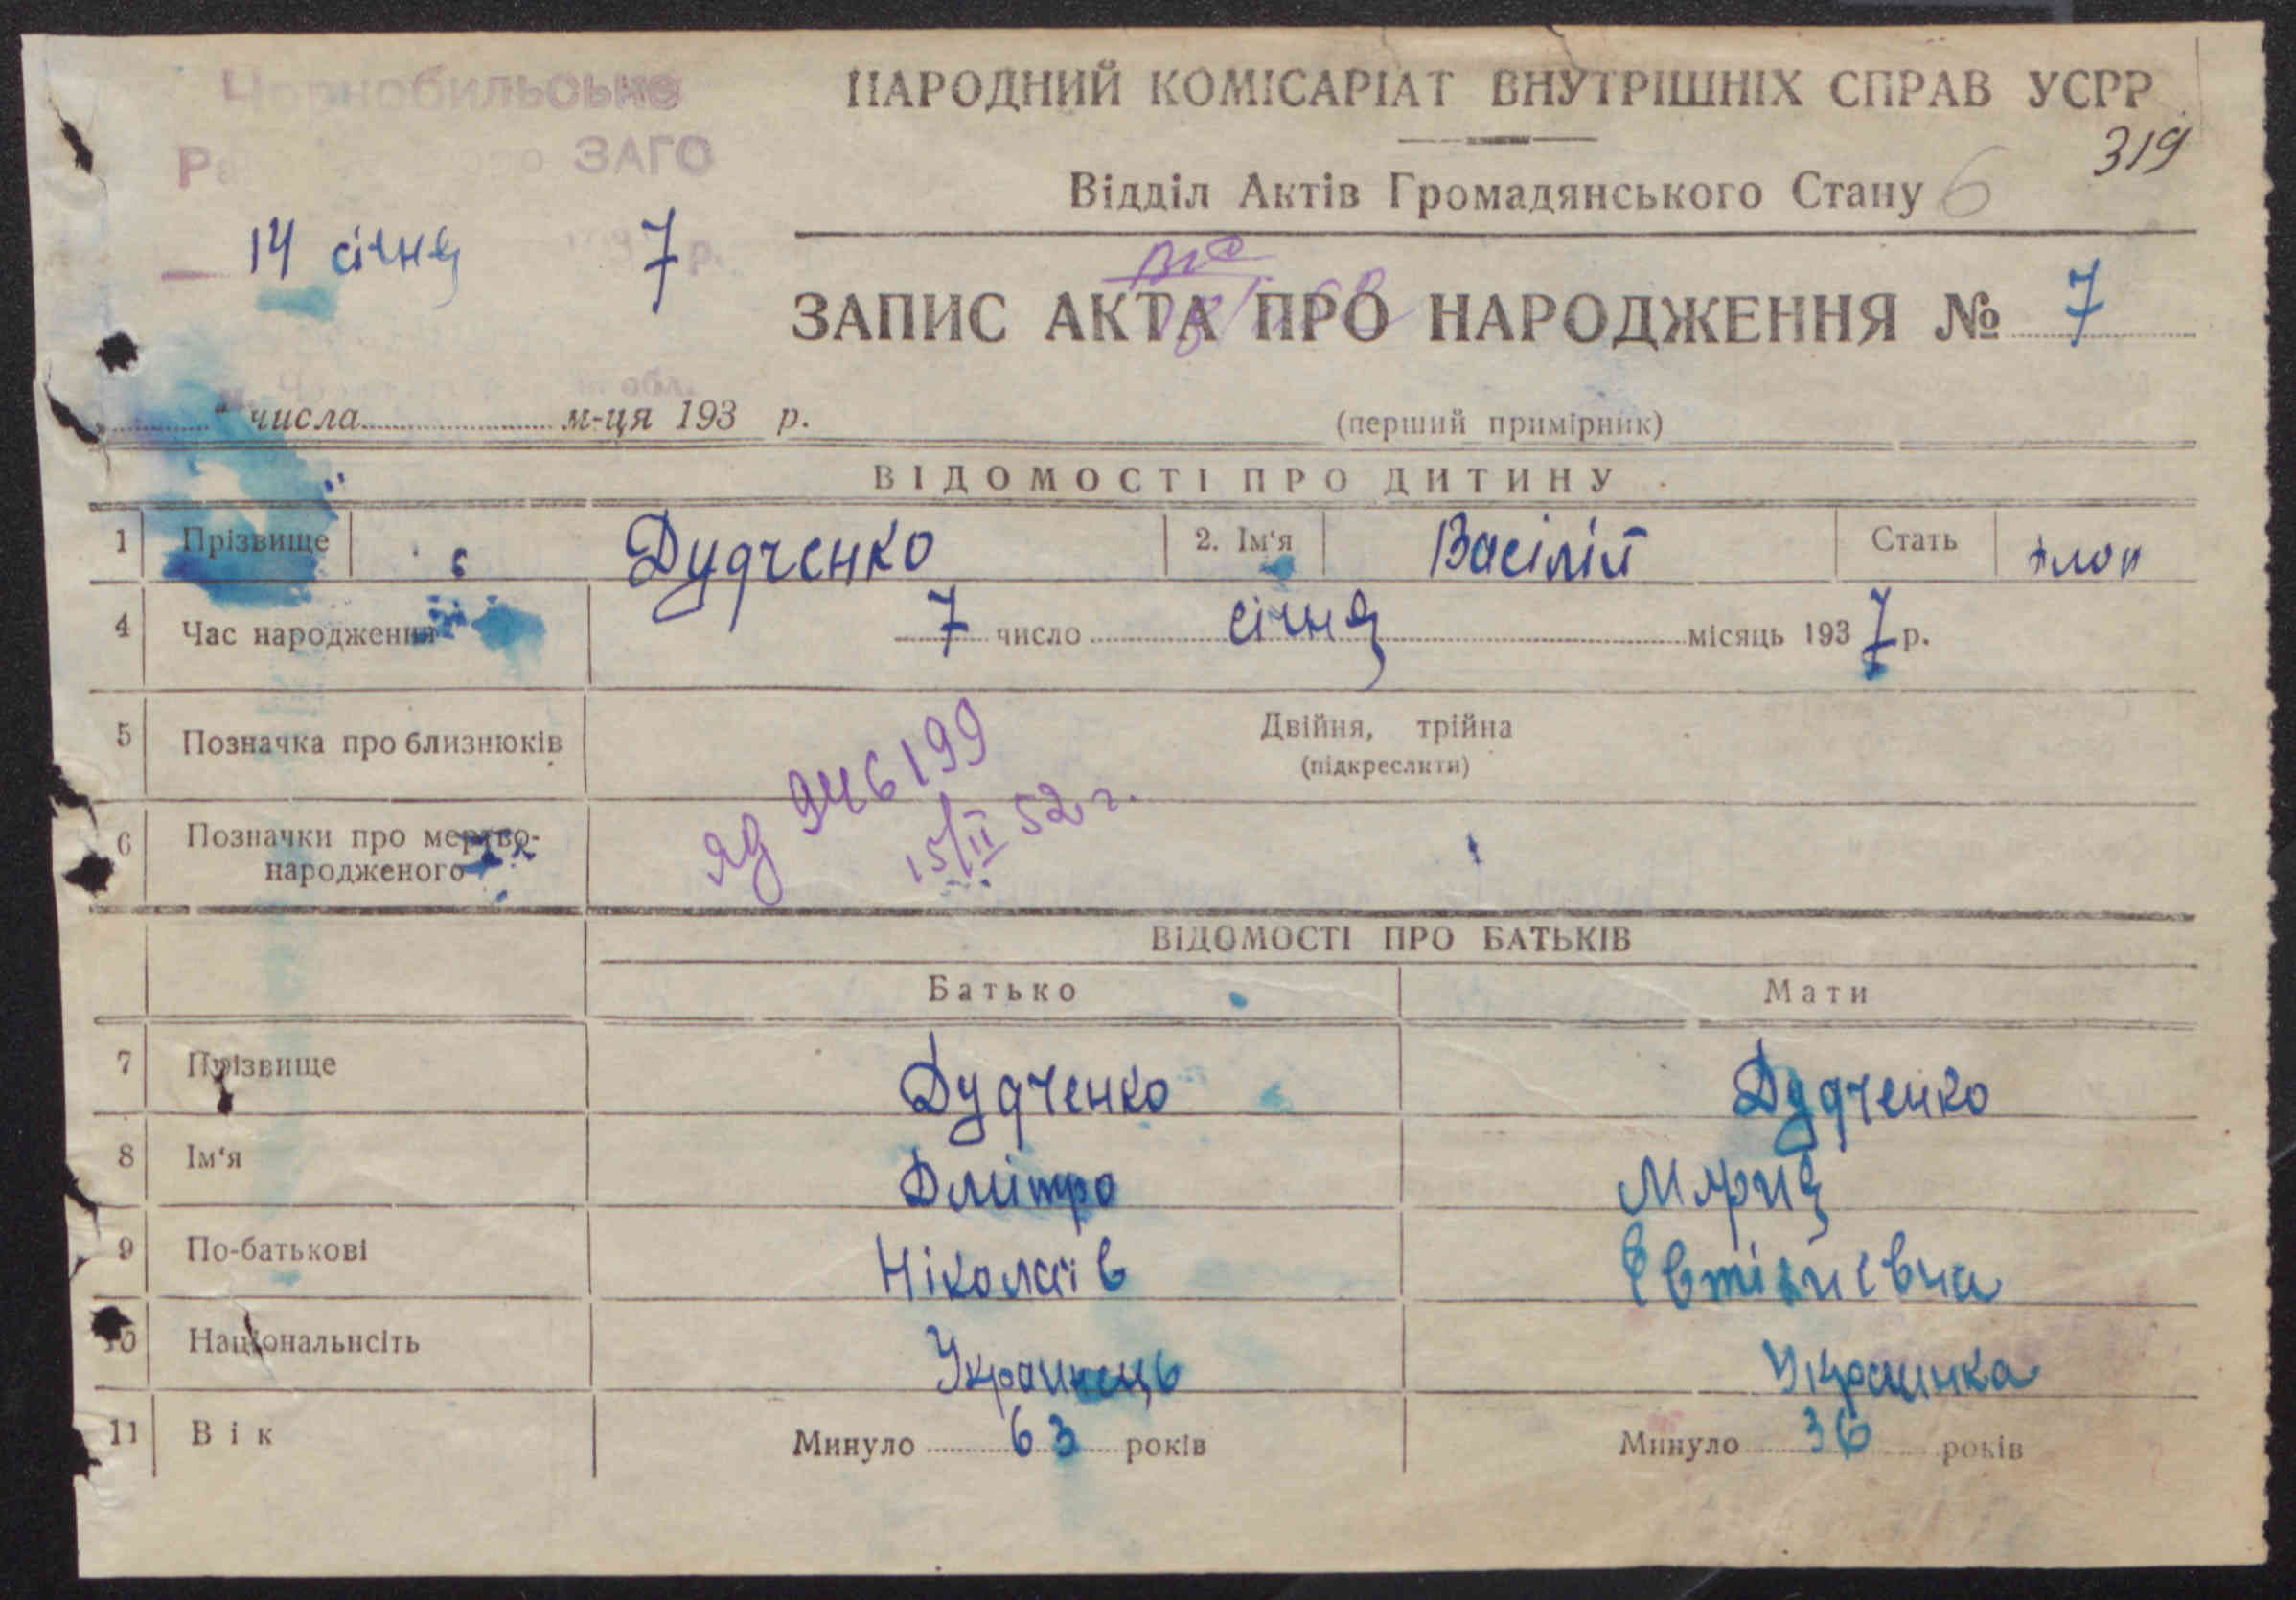 Чорнобильське
ЗАГС
14 січня 7 р.
НАРОДНИЙ КОМІСАРІАТ ВНУТРІШНІХ СПРАВ УСРР
319
Відділ Актів Громадянського Стану 6
ЗАПИС АКТА ПРО НАРОДЖЕННЯ № 7
обл.
" числа м-ця 193 р.
(перший примірник)
ВІДОМОСТІ ПРО ДИТИНУ
1 Прізвище Дудченко 2. Ім'я Васілій Стать хлоп
4 Час народження 7 число січня місяць 1937 р.
5 Позначка про близнюків Двійня, трійна
(підкреслити)
ЯД 946199
15/II 52 г.
6 Позначки про мертво-
народженого
ВІДОМОСТІ ПРО БАТЬКІВ
Батько Мати
7 Прізвище Дудченко Дудченко
8 Ім'я Дмітро Мария
9 По-батькові Ніколаїв
10 Національнсіть Украинець Украинка
11 Вік Минуло 63 років Минуло 36 років